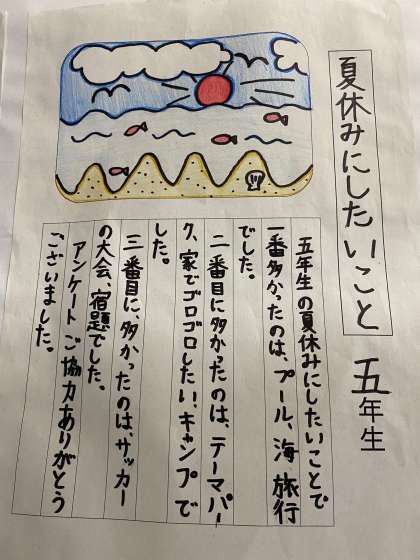 夏休みにしたいこと
五年生
五年生の夏休みにしたいことで
一番多かったのは、プール、海 旅行
でした。
二番目に多かったのは、テーマパー
ク、家でゴロゴロしたい、キャンプで
した。
三番目に、多かったのは、サッカー
の大会、宿題でした。
アンケートご協力ありがとう
ございました。